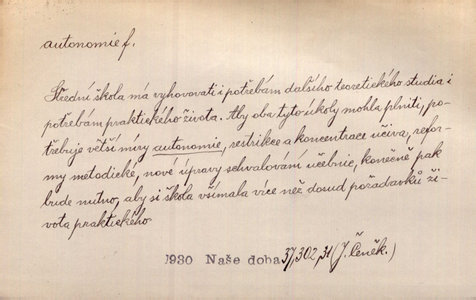 autonomie f.
Střední škola má vyhovovati i potřebám dalšího teoretického studia i
potřebám praktického života. Aby oba tyto úkoly mohla plniti, po-
třebuje větší míry autonomie, restrikce a koncentrace učiva, refor-
my metodické, nové úpravy schvalování učebnic, konečně pak
bude nutno, aby si škola všímala více než dosud požadavků ži-
vota praktického.
1930 Naše doba 37,302,31 (J. Čeněk.)